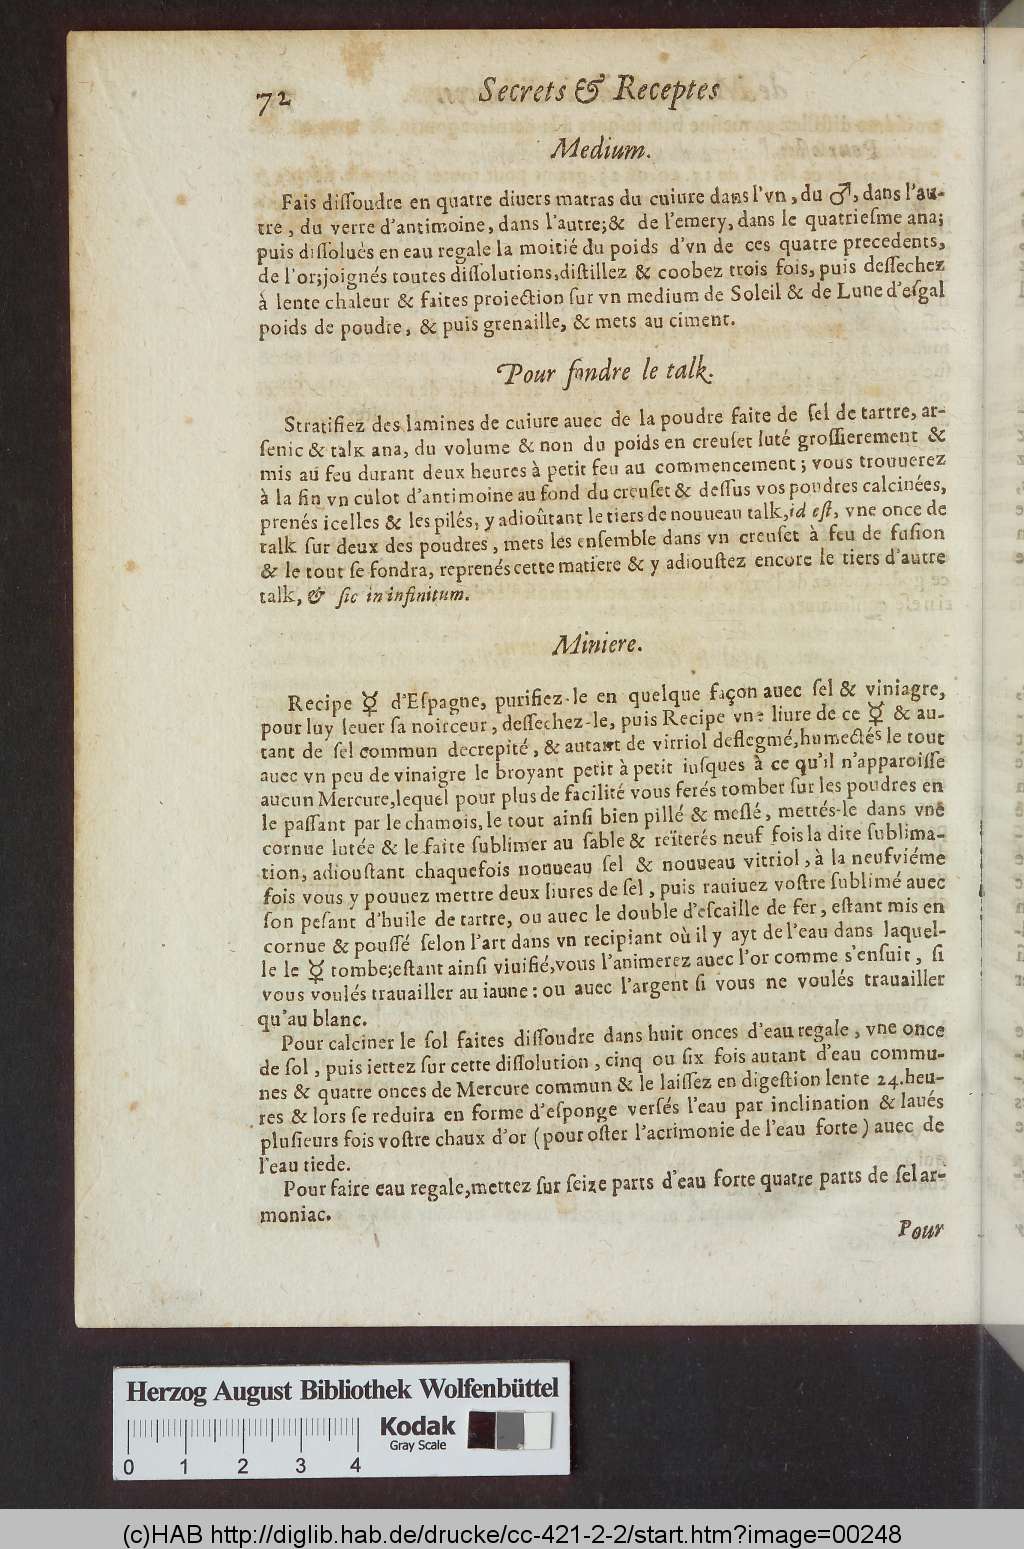 72 Secrets & Receptes
Medium.
Fais diſſoudre en quatre diuers matras du cuiure dans l'vn, du ♂, dans l'au-
tre, du verre d'antimoine, dans l'autre;& de l'emery, dans le quatrieſme ana;
puis diſſolués en eau regale la moitié du poids d'vn de ces quatre precedents,
de l'or;joignés toutes diſſolutions,diſtillez & coobez trois fois, puis deſſechez
à lente chaleur & faites proiection ſur vn medium de Soleil & de Lune d'eſgal
poids de poudre, & puis grenaille, & mets au ciment.
Pour fondre le talk.
Stratifiez des lamines de cuiure auec de la poudre faite de ſel de tartre, ar-
ſenic & talk ana, du volume & non du poids en creuſet luté groſſierement &
mis au feu durant deux heures à petit feu au commencement; vous trouuerez
à la fin vn culot d'antimoine au fond du creuſet & deſſus vos poudres calcinées,
prenés icelles & les pilés, y adioûtant le tiers de nouueau talk,id eſt, vne once de
talk ſur deux des poudres, mets les enſemble dans vn creuſet à feu de fuſion
& le tout ſe fondra, reprenés cette matiere & y adiouſtez encore le tiers d'autre
talk, & ſic in infinitum.
Miniere.
Recipe ☿ d'Eſpagne, purifiez-le en quelque façon auec ſel & viniagre,
pour luy leuer ſa noirceur, deſſechez-le, puis Recipe vne liure de ce ☿ & au-
tant de ſel commun decrepité, & autant de virriol deflegmé,humectés le tout
auec vn peu de vinaigre le broyant petit à petit iuſques à ce qu'il n'apparoiſſe
aucun Mercure,lequel pour plus de facilité vous ferés tomber ſur les poudres en
le paſſant par le chamois, le tout ainſi bien pillé & meſlé, mettés-le dans vne
cornue lutée & le faite ſublimer au ſable & reïterés neuf fois la dite ſublima-
tion, adiouſtant chaquefois nouueau ſel & nouueau vitriol, à la neufviéme
fois vous y pouuez mettre deux liures de ſel, puis rauiuez voſtre ſublimé auec
ſon peſant d'huile de tartre, ou auec le double d'eſcaille de fer, eſtant mis en
cornue & pouſſé ſelon l'art dans vn recipiant où il y ayt de l'eau dans laquel-
le le ☿ tombe;eſtant ainſi viuifié,vous l'animerez auec l'or comme s'enſuit, ſi
vous voulés trauailler au iaune: ou auec l'argent ſi vous ne voulés trauailler
qu'au blanc.
Pour calciner le ſol faites diſſoudre dans huit onces d'eau regale, vne once
de ſol, puis iettez ſur cette diſſolution, cinq ou ſix fois autant d'eau commu-
nes & quatre onces de Mercure commun & le laiſſez en digeſtion lente 24.heu-
res & lors ſe reduira en forme d'eſponge verſés l'eau par inclination & laués
pluſieurs fois voſtre chaux d'or (pour oſter l'acrimonie de l'eau forte) auec de
l'eau tiede.
Pour faire eau regale,mettez ſur ſeize parts d'eau forte quatre parts de ſel ar-
moniac.
Pour
Herzog August Bibliothek Wolfenbüttel
Kodak
Gray Scale
0 1 2 3 4
(c)HAB http://diglib.hab.de/drucke/cc-421-2-2/start.htm?image=00248